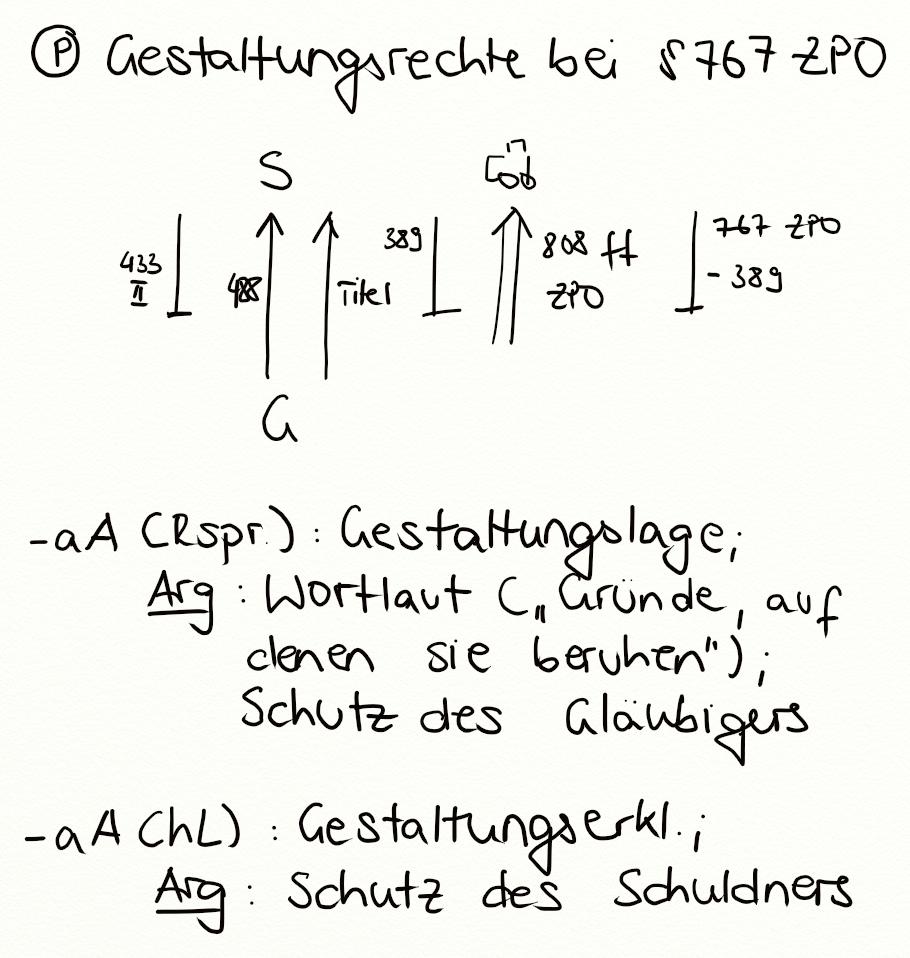 Ⓟ Gestaltungsrechte bei § 767 ZPO
S
433 II
488
Titel
389
808 ff
ZPO
767 ZPO
- 389
G
- aA (Rspr.) : Gestaltungslage;
Arg : Wortlaut („Gründe, auf
denen sie beruhen");
Schutz des Gläubigers
- aA (hL) : Gestaltungserkl.;
Arg : Schutz des Schuldners